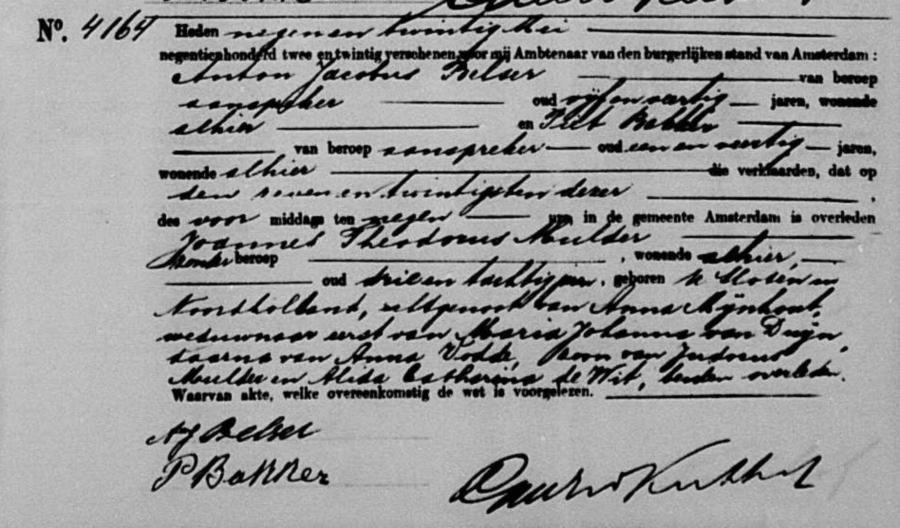 No. 4164 Heden negen en twintig Mei
negentienhonderd twee en twintig verschenen voor mij Ambtenaar van den burgerlijken stand van Amsterdam :
Anton Jacobus Belser van beroep
aanspreker oud vijf en veertig jaren, wonende
alhier en Piet Bakker
van beroep aanspreker oud een en veertig jaren,
wonende alhier die verklaarden, dat op
den zeven en twintigsten dezer ,
des voor middags ten negen ure in de gemeente Amsterdam is overleden
Joannes Theodorus Mulder
zonder beroep , wonende alhier,
oud drie en tachtig jaar, geboren te Sloten in
Noordholland, echtgenoot van Anna Mijnhout,
weduwnaar eerst van Maria Johanna van Duijn,
daarna van Anna Vodde, zoon van Judocus
Mulder en Alida Catharina de Wit, beiden overleden.
Waarvan akte, welke overeenkomstig de wet is voorgelezen.
AJ Belser
P Bakker